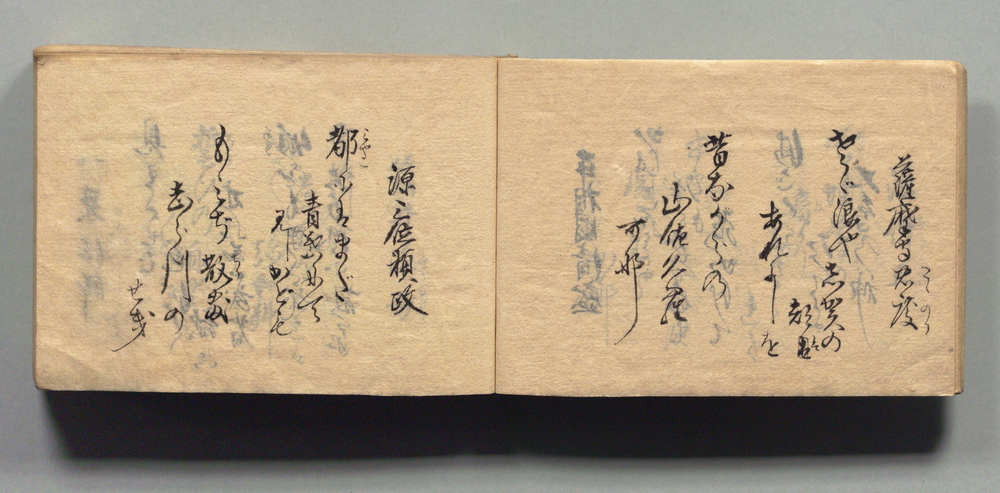 薩摩守忠度
さゝ浪や志賀の
都盤
あれにし
を
昔ながらの
山佐久羅
可那
源三位頼政
都にはまだ
青葉にて
見しかども
もみぢ散敷
志ら川の
せき